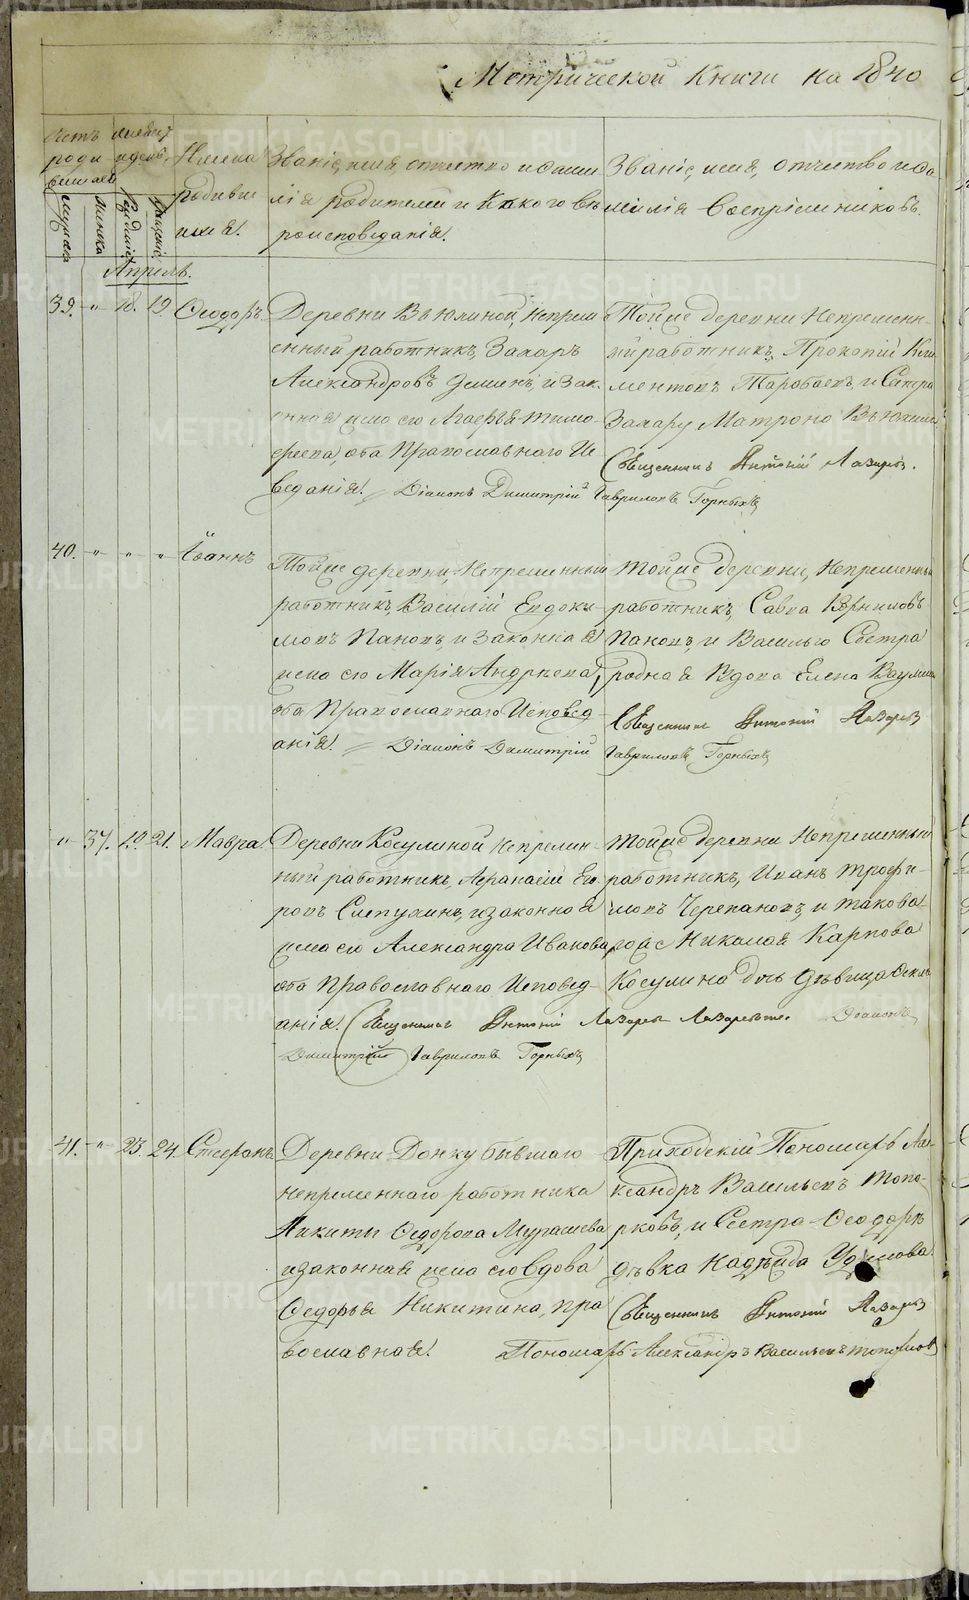 Метрической Книги на 1840
Счетъ роди вшихся
Мужеска
Женска
Месяцъ и день
Рожденiя
Крещенiя
Имена родивш ихся.
Званiе, имя, отчество и фами
лiя родителей и Какого вѣ
роисповѣданiя.
Званiе, имя, отчество и фа
милiя Воспрiемниковъ.
Апрель.
39. " 18. 19. Ѳеодоръ
Деревни Вьюхиной, Непрем
енный работникъ, Захаръ
Александровъ и зак
онная жена его Агафья Тимо
феева, оба Православнаго Ис
веданiя. Дiаконъ Димитрiй Гавриловъ Горныхъ
Тойже деревни Непременн
ый работникъ, Прокопiй Кли
ментовъ и Сестра
Захару Матрона Вьюхина
Священникъ Антонiй Лазарев.
40. " " " Iоаннъ
Тойже деревни, Непременный
работникъ, Василiй Евдоки
мовъ Пановъ, и законная
жена его Марiя Андреева,
оба Православнаго Исповед
анiя. Дiаконъ Димитрiй Гавриловъ Горныхъ
Тойже деревни, Непременный
работникъ, Савва
Пановъ, и Василью Сестра
родная Вдова Елена
Священникъ Антонiй Лазарев
" 37. 19. 21. Мавра.
Деревни Косулиной Непремен
ный работникъ, Афанасiй Его
ровъ Слепухинъ, и законная
жена его Александра Иванова,
оба Православнаго Исповед
анiя. Священникъ Антонiй Лазарев Дiаконъ
Димитрiй Гавриловъ Горныхъ
Тойже деревни Непременный
работникъ, Иванъ Трофи
мовъ Черепановъ, и такова
гожъ Николая Карпова
Косулина дочь дѣвица
41. " 23. 24. Стефанъ
Деревни бывшаго
непременнаго работника
Никиты Ѳедорова Мурашева
и законная жена его вдова
Федосья Никитина, пра
вославная.
Приходскiй Пономарь Але
ксандръ Васильевъ Топо
рковъ, и Сестра
дѣвка Надежда
Священникъ Антонiй Лазарев
Пономарь Александръ Васильевъ Топорков
METRIKI.GASO-URAL.RU